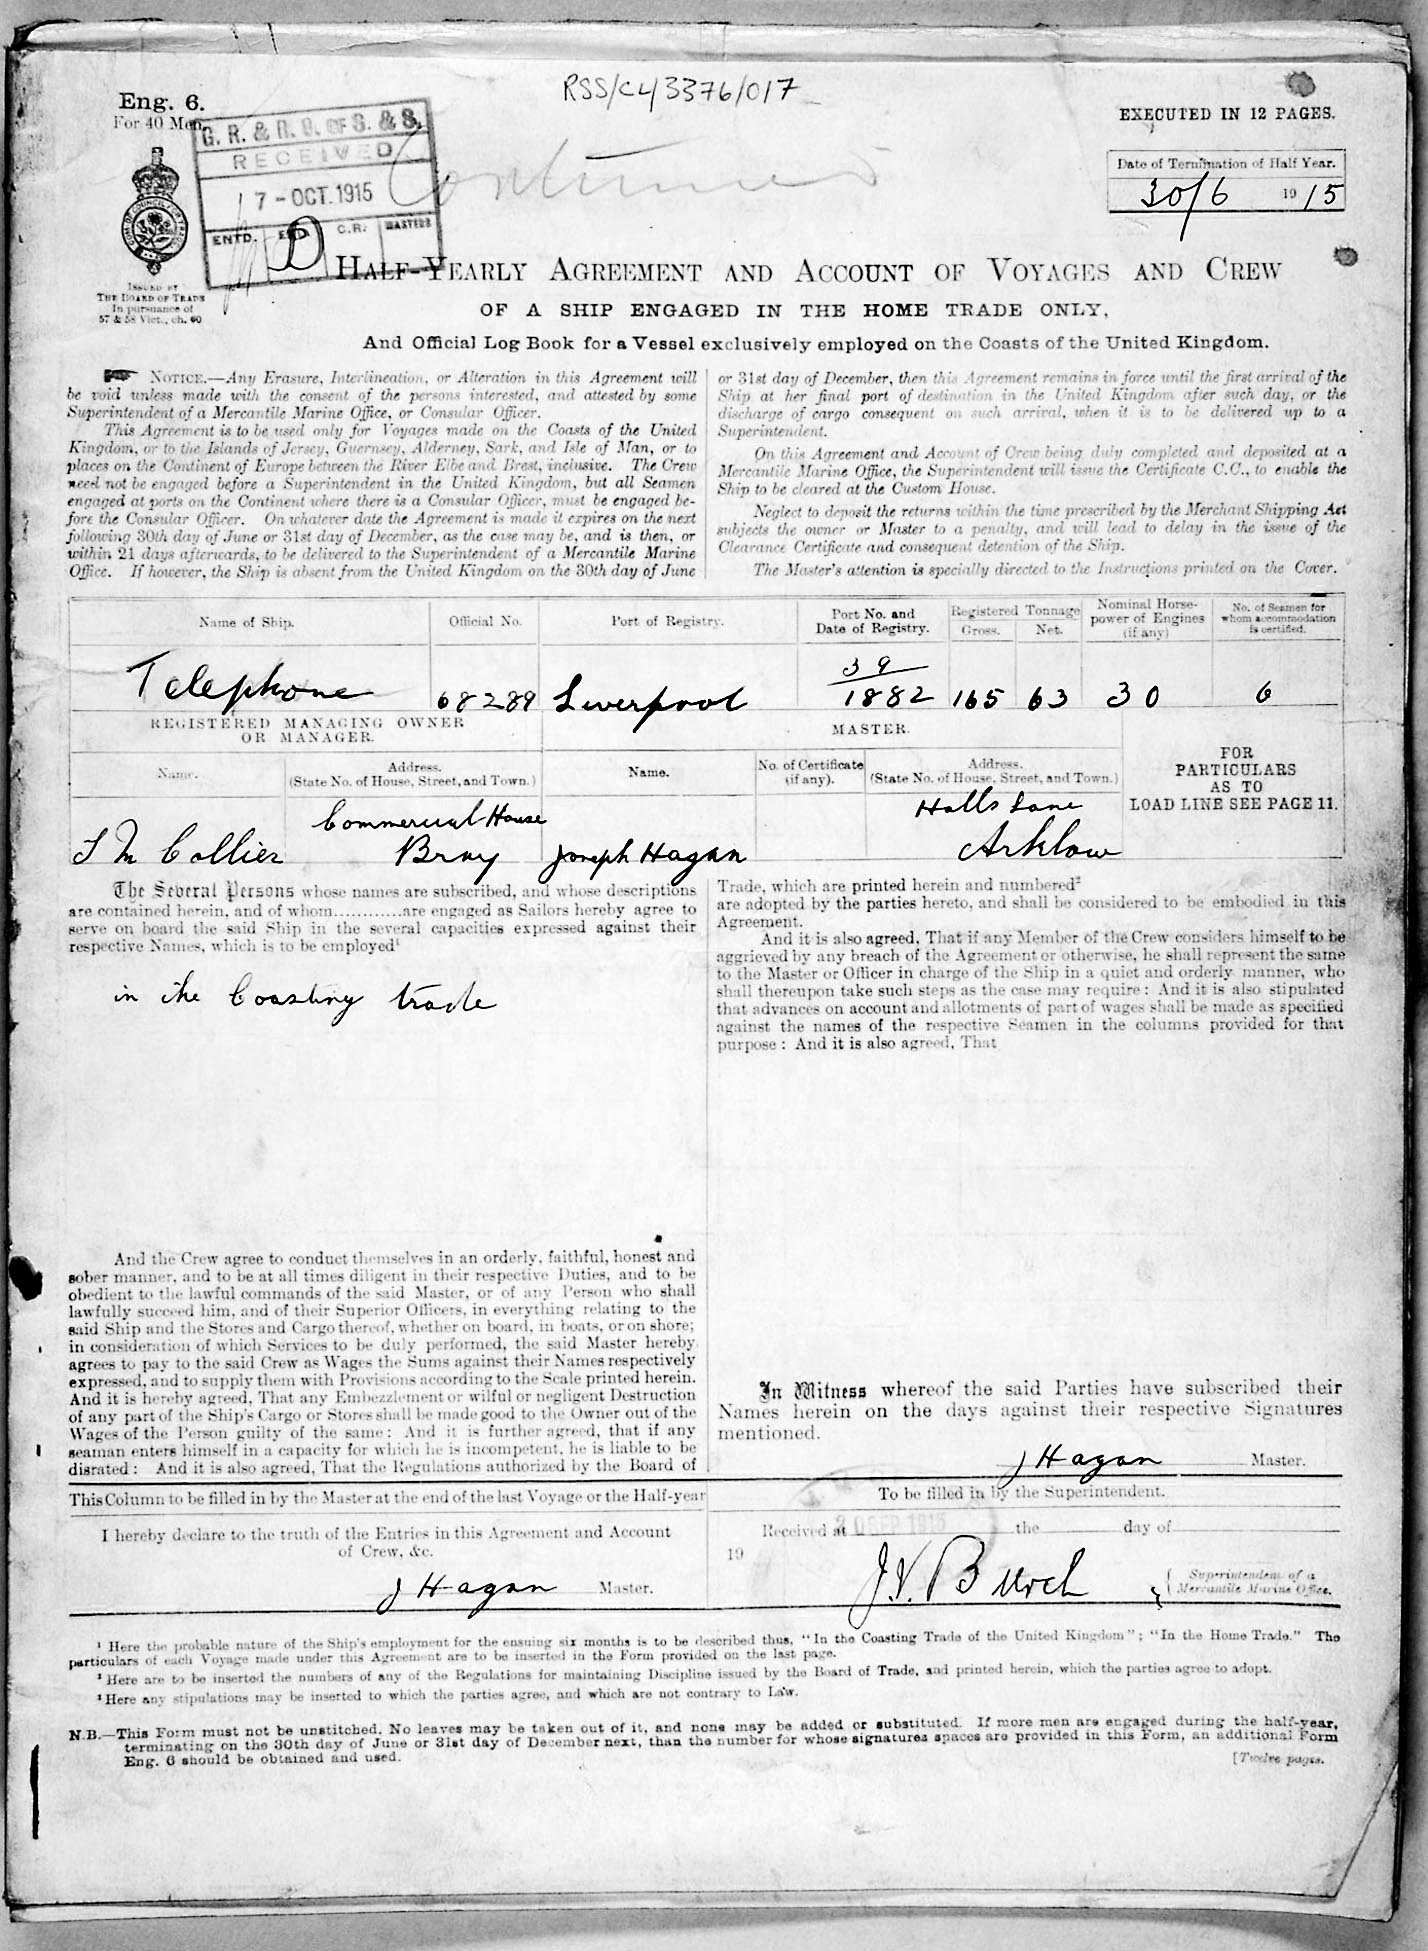 RSS/CL/3376/017
Eng. 6.
For 40 Men.
EXECUTED IN 12 PAGES.
G. R. & R. O. OF S. & S.
RECEIVED
17 - OCT. 1915
ENTD. C.R. MASTERS
D
Continued
Date of Termination of Half Year.
30/6 1915
ISSUED BY
THE BOARD OF TRADE
In pursuance of
57 & 58 Vict., ch. 60
HALF-YEARLY AGREEMENT AND ACCOUNT OF VOYAGES AND CREW
OF A SHIP ENGAGED IN THE HOME TRADE ONLY,
And Official Log Book for a Vessel exclusively employed on the Coasts of the United Kingdom.
NOTICE.—Any Erasure, Interlineation, or Alteration in this Agreement will
be void unless made with the consent of the persons interested, and attested by some
Superintendent of a Mercantile Marine Office, or Consular Officer.
This Agreement is to be used only for Voyages made on the Coasts of the United
Kingdom, or to the Islands of Jersey, Guernsey, Alderney, Sark, and Isle of Man, or to
places on the Continent of Europe between the River Elbe and Brest, inclusive. The Crew
need not be engaged before a Superintendent in the United Kingdom, but all Seamen
engaged at ports on the Continent where there is a Consular Officer, must be engaged be-
fore the Consular Officer. On whatever date the Agreement is made it expires on the next
following 30th day of June or 31st day of December, as the case may be, and is then, or
within 21 days afterwards, to be delivered to the Superintendent of a Mercantile Marine
Office. If however, the Ship is absent from the United Kingdom on the 30th day of June
or 31st day of December, then this Agreement remains in force until the first arrival of the
Ship at her final port of destination in the United Kingdom after such day, or the
discharge of cargo consequent on such arrival, when it is to be delivered up to a
Superintendent.
On this Agreement and Account of Crew being duly completed and deposited at a
Mercantile Marine Office, the Superintendent will issue the Certificate C.C., to enable the
Ship to be cleared at the Custom House.
Neglect to deposit the returns within the time prescribed by the Merchant Shipping Act
subjects the owner or Master to a penalty, and will lead to delay in the issue of the
Clearance Certificate and consequent detention of the Ship.
The Master's attention is specially directed to the Instructions printed on the Cover.
Name of Ship. Official No. Port of Registry. Port No. and Date of Registry. Registered Tonnage Gross. Net. Nominal Horse-power of Engines (if any) No. of Seamen for whom accommodation is certified.
Telephone 68289 Liverpool 39/1882 165 63 30 6
REGISTERED MANAGING OWNER
OR MANAGER.
MASTER.
Name. Address. (State No. of House, Street, and Town.) Name. No. of Certificate (if any). Address. (State No. of House, Street, and Town.)
FOR
PARTICULARS
AS TO
LOAD LINE SEE PAGE 11.
Commercial House Halls Lane
J M Collier Bray Joseph Hagan Arklow
The Several Persons whose names are subscribed, and whose descriptions
are contained herein, and of whom............are engaged as Sailors hereby agree to
serve on board the said Ship in the several capacities expressed against their
respective Names, which is to be employed¹
in the Coasting trade
And the Crew agree to conduct themselves in an orderly, faithful, honest and
sober manner, and to be at all times diligent in their respective Duties, and to be
obedient to the lawful commands of the said Master, or of any Person who shall
lawfully succeed him, and of their Superior Officers, in everything relating to the
said Ship and the Stores and Cargo thereof, whether on board, in boats, or on shore;
in consideration of which Services to be duly performed, the said Master hereby
agrees to pay to the said Crew as Wages the Sums against their Names respectively
expressed, and to supply them with Provisions according to the Scale printed herein.
And it is hereby agreed, That any Embezzlement or wilful or negligent Destruction
of any part of the Ship's Cargo or Stores shall be made good to the Owner out of the
Wages of the Person guilty of the same: And it is further agreed, that if any
seaman enters himself in a capacity for which he is incompetent, he is liable to be
disrated: And it is also agreed, That the Regulations authorized by the Board of
Trade, which are printed herein and numbered²
are adopted by the parties hereto, and shall be considered to be embodied in this
Agreement.
And it is also agreed, That if any Member of the Crew considers himself to be
aggrieved by any breach of the Agreement or otherwise, he shall represent the same
to the Master or Officer in charge of the Ship in a quiet and orderly manner, who
shall thereupon take such steps as the case may require: And it is also stipulated
that advances on account and allotments of part of wages shall be made as specified
against the names of the respective Seamen in the columns provided for that
purpose: And it is also agreed, That
In Witness whereof the said Parties have subscribed their
Names herein on the days against their respective Signatures
mentioned.
J Hagan Master.
This Column to be filled in by the Master at the end of the last Voyage or the Half-year
I hereby declare to the truth of the Entries in this Agreement and Account
of Crew, &c.
J Hagan Master.
To be filled in by the Superintendent.
Received at the day of
19
SEP 1915
J.V. Burch
Superintendent of a
Mercantile Marine Office.
¹ Here the probable nature of the Ship's employment for the ensuing six months is to be described thus, "In the Coasting Trade of the United Kingdom"; "In the Home Trade." The
particulars of each Voyage made under this Agreement are to be inserted in the Form provided on the last page.
² Here are to be inserted the numbers of any of the Regulations for maintaining Discipline issued by the Board of Trade, and printed herein, which the parties agree to adopt.
³ Here any stipulations may be inserted to which the parties agree, and which are not contrary to Law.
N.B.—This Form must not be unstitched. No leaves may be taken out of it, and none may be added or substituted. If more men are engaged during the half-year,
terminating on the 30th day of June or 31st day of December next, than the number for whose signatures spaces are provided in this Form, an additional Form
Eng. 6 should be obtained and used.
[Twelve pages.